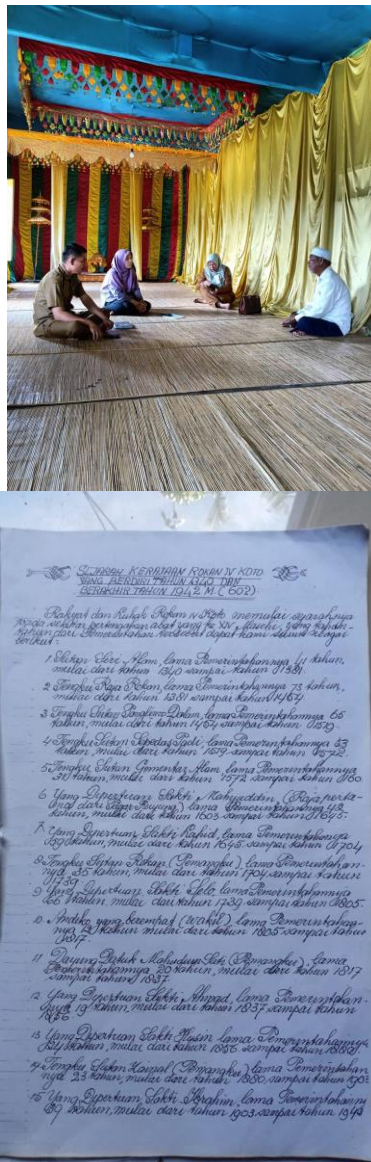 SEJARAH KERAJAAN ROKAN IV KOTO
YANG BERDIRI TAHUN 1340 DAN
BERAKHIR TAHUN 1942 M. (602)
Rakyat dan Luhak Rokan IV Koto memulai sejarahnya
pada sekitar pertengahan abad yang ke XIV Masehi, yang
tahun dari Pemerintahan tersebut dapat kami
berikut:
1. Sultan Seri Alam, lama Pemerintahannya 41 tahun,
mulai dari tahun 1340 sampai tahun 1381.
2. Tengku Raja Rokan, lama Pemerintahannya 73 tahun,
mulai dari tahun 1381 sampai tahun 1454
3. Tengku Sutan Dalam, lama Pemerintahannya 65
tahun, mulai dari tahun 1454 sampai tahun 1519.
4. Tengku Sutan lama Pemerintahannya 53
tahun, mulai dari tahun 1519 sampai tahun 1572.
5. Tengku Sutan Gementar Alam, lama Pemerintahannya
31 tahun, mulai dari tahun 1572 sampai tahun
6. Yang Dipertuan Sakti (Raja perta-
dari lama Pemerintahannya 42
tahun, mulai dari tahun 1603 sampai tahun 1645.
7. Yang Dipertuan Sakti lama Pemerintahannya
tahun, mulai dari tahun 1645 sampai tahun 1704
8. Tengku Sutan Rokan (Pemangku), lama Pemerintahan-
nya 35 tahun, mulai dari tahun 1704 sampai tahun
1739
9. Yang Dipertuan Sakti Selo, lama Pemerintahannya
66 tahun, mulai dari tahun 1739 sampai tahun 1805.
10. Andiko yang berempat (Wakil), lama Pemerintahan-
nya 12 tahun, mulai dari tahun 1805 sampai tahun
1817.
11. Dayung Datuk (Pemangku), lama
Pemerintahannya 20 tahun, mulai dari tahun 1817
sampai tahun 1837
12. Yang Dipertuan Sakti Ahmad, lama Pemerintahan-
nya 19 tahun, mulai dari tahun 1837 sampai tahun
1856
13. Yang Dipertuan Sakti Husin, lama Pemerintahannya
tahun, mulai dari tahun 1856 sampai tahun
14. Tengku Sutan Zainal (Pemangku), lama Pemerintahan
nya 23 tahun, mulai dari tahun 1880, sampai tahun 1903
15. Yang Dipertuan Sakti Ibrahim, lama Pemerintahannya
39 tahun, mulai dari tahun 1903 sampai tahun 1942